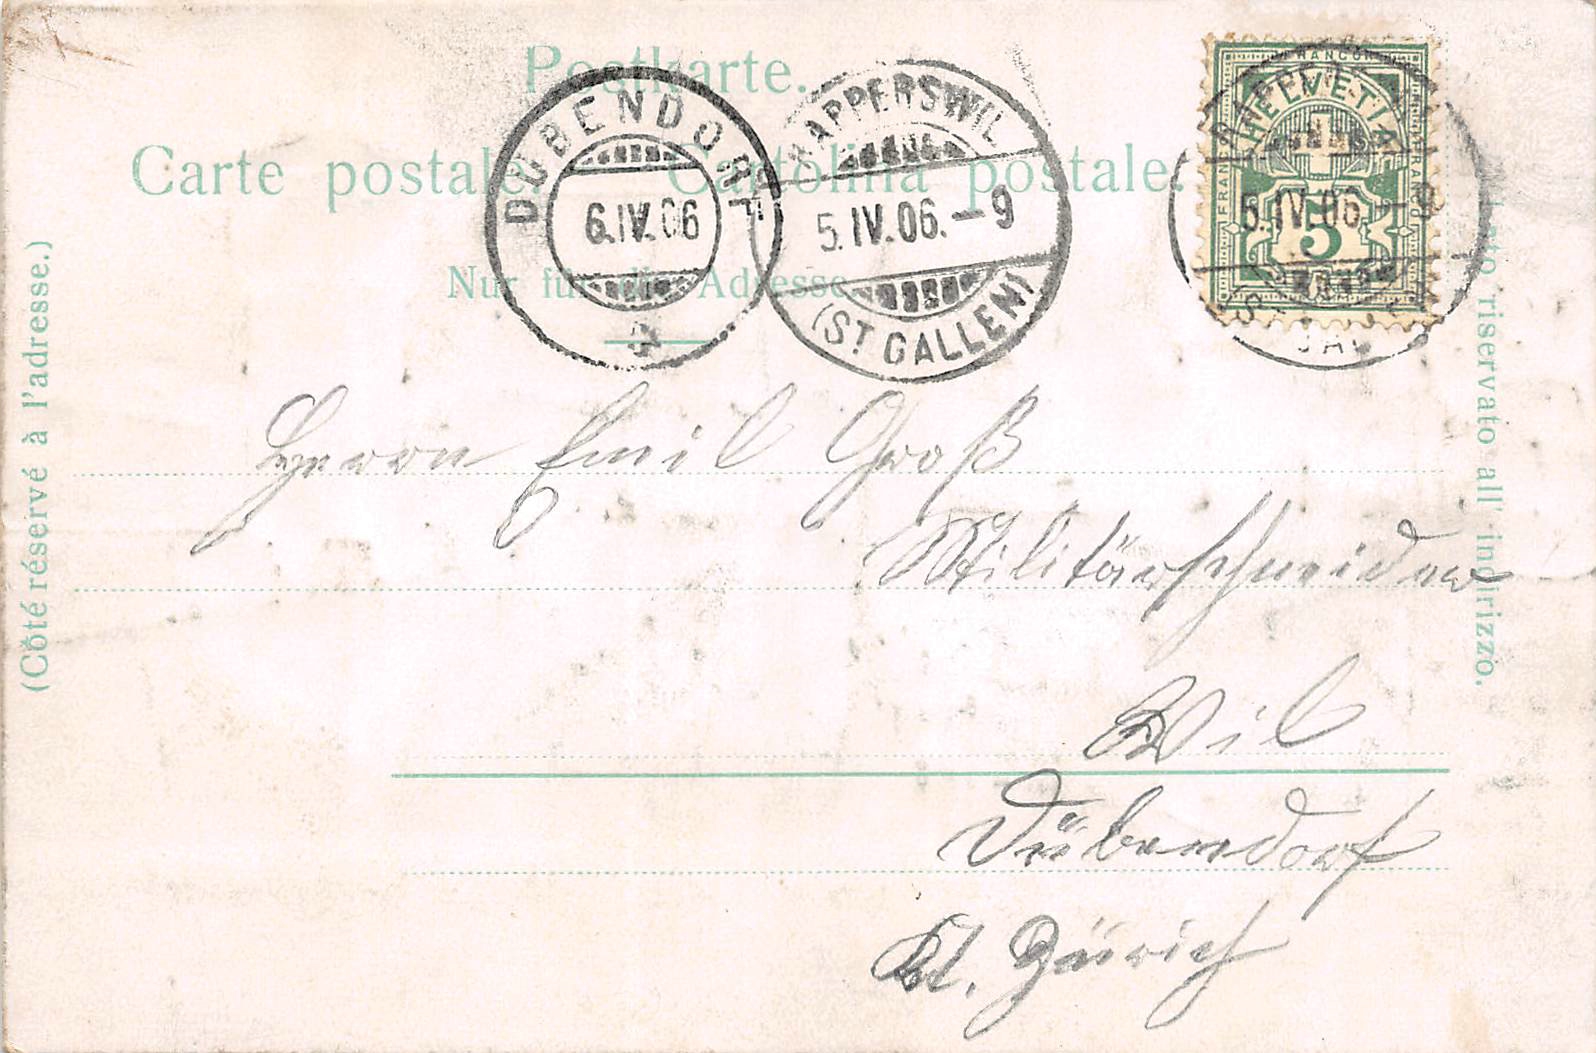 Postkarte.
Carte postale. Cartolina postale.
Nur für die Adresse.
(Côté réservé à l'adresse.)
Lato riservato all' indirizzo.
DÜBENDORF
6.IV.06
RAPPERSWIL
5.IV.06.–9
(ST. GALLEN)
FRANCO
HELVETIA
FRANCO
FRANCO
5
RAPPERSWIL
5.IV.06.–9
(ST. GALLEN)
Herrn Emil Groß
Militärschneider
Wil
Dübendorf
Kt. Zürich